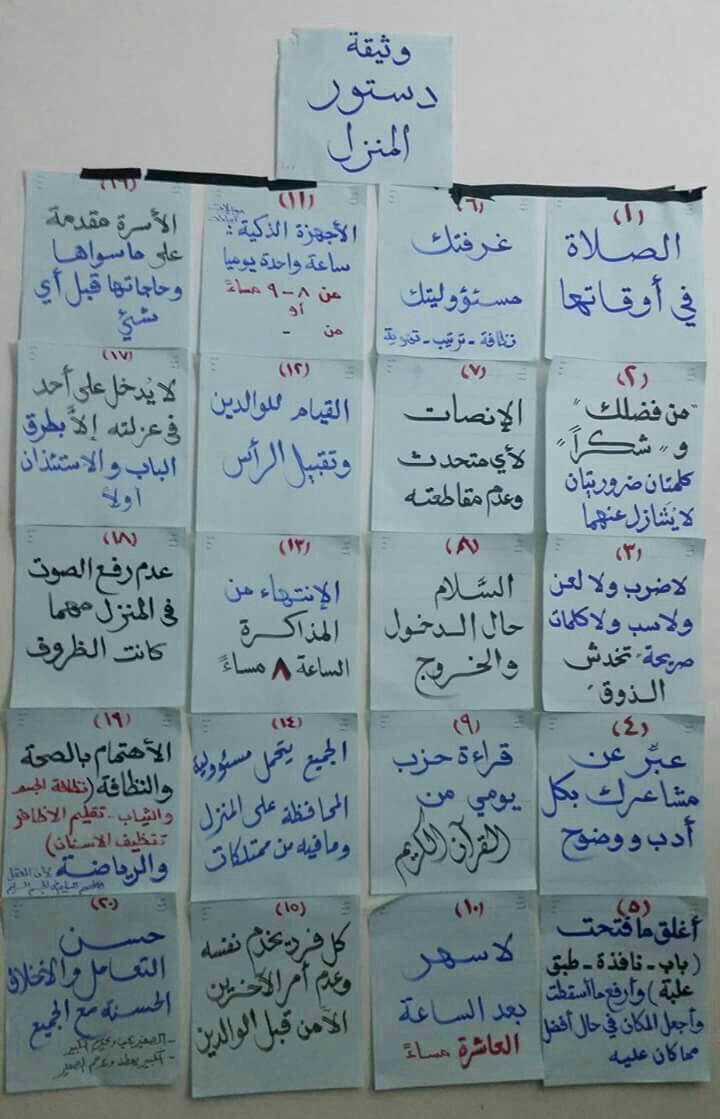 وثيقة
دستور
المنزل
(١)
الصلاة
في أوقاتها
(٢)
"من فضلك"
و "شكراً"
كلمتان ضروريتان
لا يُتنازل عنهما
(٣)
لا ضرب ولا لعن
ولا سب ولا كلمات
صريحة "تخدش
الذوق"
(٤)
عبِّر عن
مشاعرك بكل
أدب ووضوح
(٥)
أغلق ما فتحت
(باب - نافذة - طبق
علبة) وأرفع ما أسقطت
وأجعل المكان في حال أفضل
مما كان عليه
(٦)
غرفتك
مسئووليتك
نظافة - ترتيب - تهوية
(٧)
الإنصات
لأي متحدث
وعدم مقاطعته
(٨)
السَّلام
حال الدخول
والخروج
(٩)
قراءة حزب
يومي من
القرآن الكريم
(١٠)
لا سهر
بعد الساعة
العاشرة مساءً
(١١)
الأجهزة الذكية:
ساعة واحدة يوميا
من ٨ - ٩ مساءً
أو
من -
(١٢)
القيام للوالدين
وتقبيل الرأس
(١٣)
الإنتهاء من
المذاكرة
الساعة ٨ مساءً
(١٤)
الجميع يتحمل مسئولية
المحافظة على المنزل
وما فيه من ممتلكات
(١٥)
كل فرد يخدم نفسه
وعدم أمر الآخرين
الا من قبل الوالدين
(١٦)
الأسرة مقدمة
على ما سواها
وحاجاتها قبل أي
شئ
(١٧)
لا يُدخل على أحد
في عزلته إلاَّ بطرق
الباب والاستئذان
اولاً
(١٨)
عدم رفع الصوت
في المنزل مهما
كانت الظروف
(١٩)
الأهتمام بالصحة
والنظافة (نظافة الجسم
والثياب - تقليم الاظافر
تنظيف الاسنان)
والرياضة لأن العقل
السليم في الجسم السليم
(٢٠)
حسن
التعامل والأخلاق
الحسنة مع الجميع
- الصغير يحب ويحترم الكبير
- الكبير يعطف